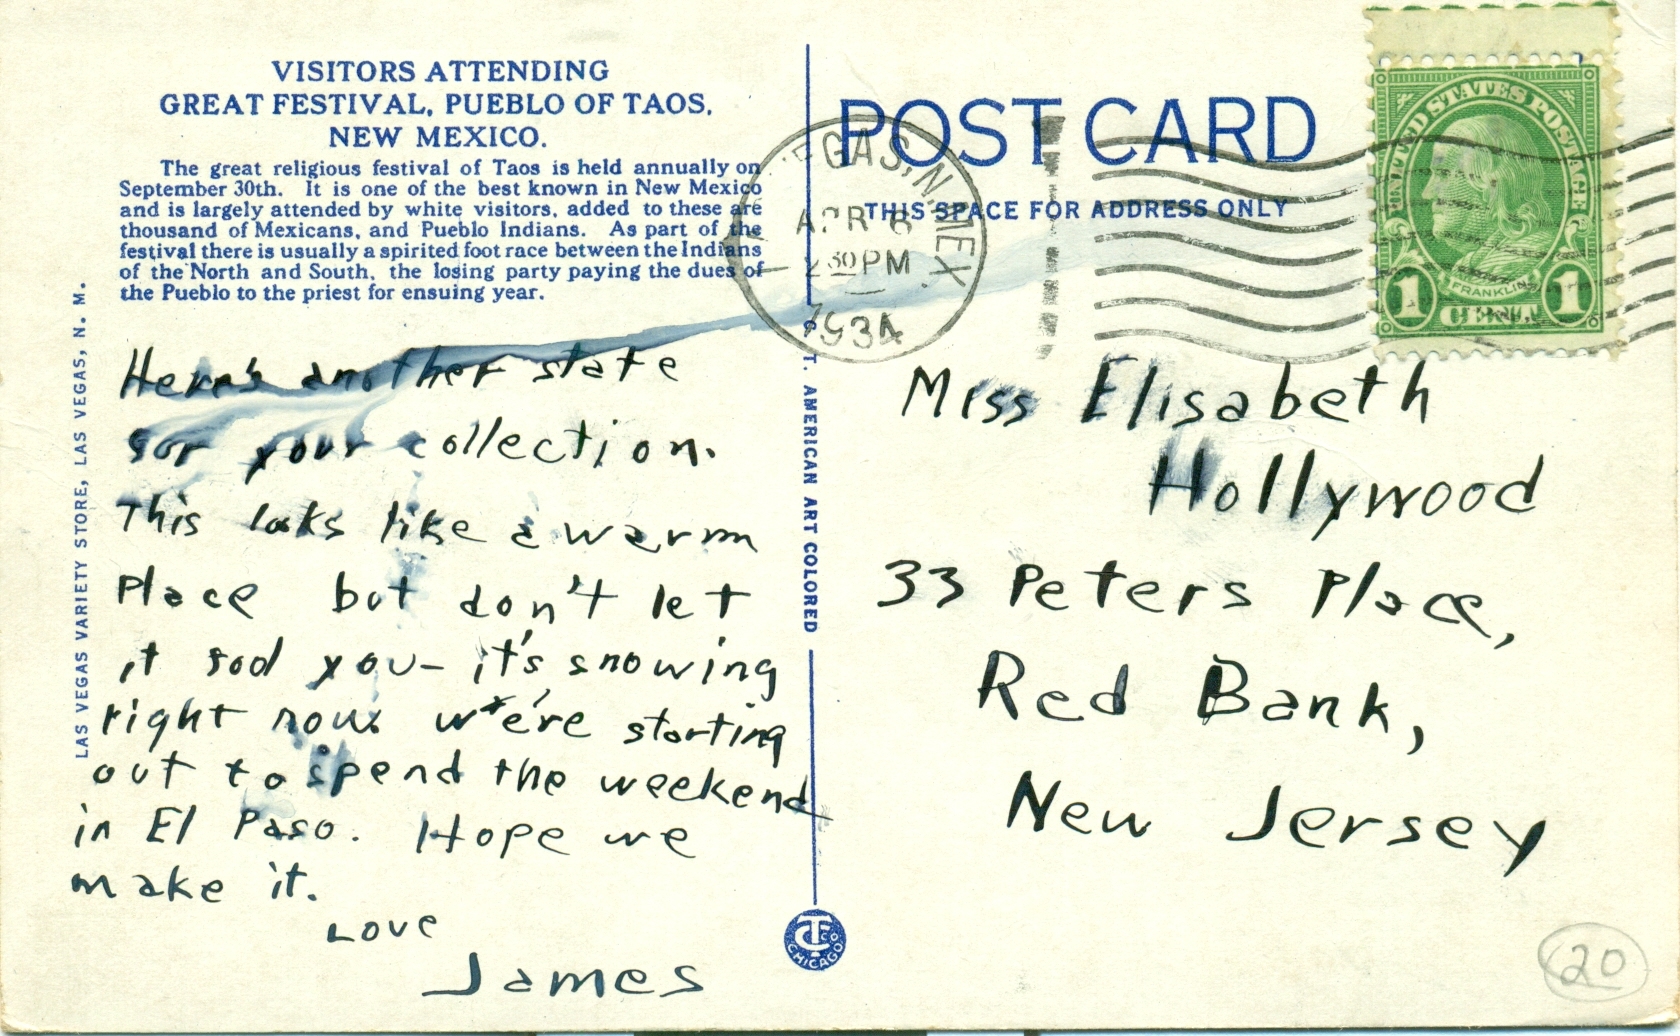 VISITORS ATTENDING
GREAT FESTIVAL, PUEBLO OF TAOS,
NEW MEXICO.
The great religious festival of Taos is held annually on
September 30th. It is one of the best known in New Mexico
and is largely attended by white visitors, added to these are
thousand of Mexicans, and Pueblo Indians. As part of the
festival there is usually a spirited foot race between the Indians
of the North and South, the losing party paying the dues of
the Pueblo to the priest for ensuing year.
LAS VEGAS VARIETY STORE, LAS VEGAS, N. M.
Here's another state
for your collection.
This looks like a warm
place but don't let
it fool you - it's snowing
right now. we're starting
out to spend the weekend
in El Paso. Hope we
make it.
Love
James
C. T. AMERICAN ART COLORED
CTCO
CHICAGO
POST CARD
THIS SPACE FOR ADDRESS ONLY
EGAS, N. MEX.
APR 6
2 30 PM
1934
UNITED STATES POSTAGE
FRANKLIN
1 CENT 1
Miss Elisabeth
Hollywood
33 Peters Place,
Red Bank,
New Jersey
20